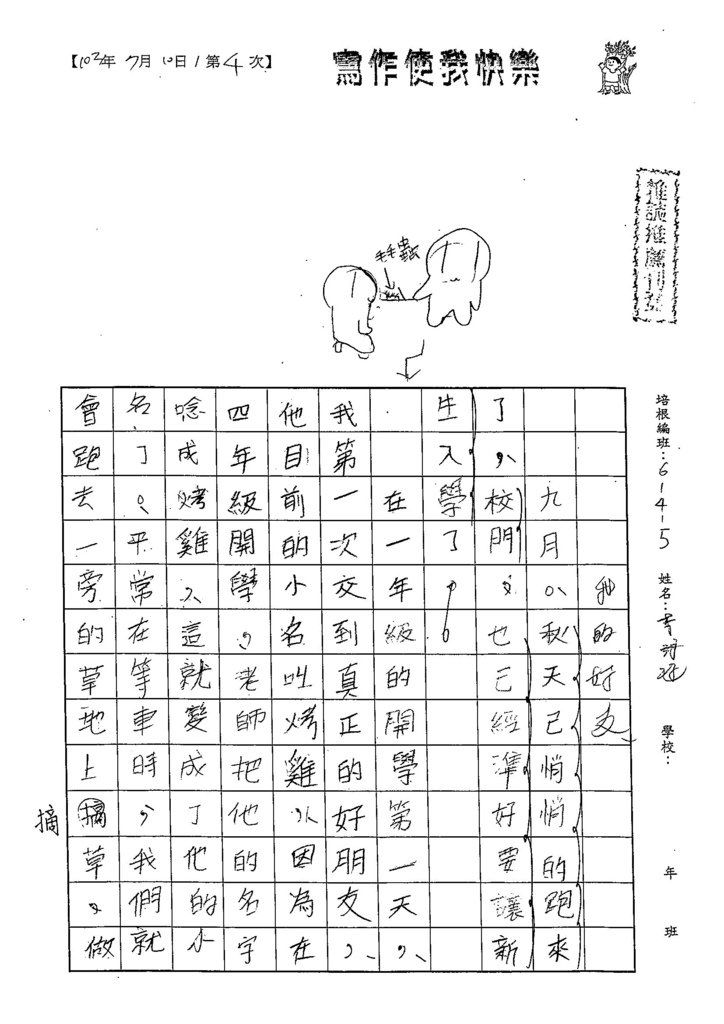 【102年 7月 10日 / 第4次】
寫作使我快樂
毛毛蟲
培根編班：6-1-4-5 姓名： 學校： 年 班
我的好友
九月，秋天已悄悄的跑來
了，校門，也已經準好要讓新
生入學了。
在一年級的開學第一天，
我第一次交到真正的好朋友，
他目前的小名叫烤雞，因為在
四年級開學，老師把他的名字
唸成烤雞，這就變成了他的小
名了。平常在等車時，我們就
會跑去一旁的草地上摘草，做
摘